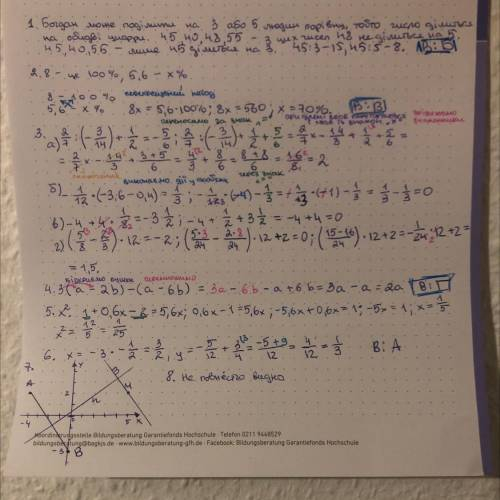 1. Богдан може поділити на 3 або 5 людин порівну, тобто число ділиться
на обидві цифри. 45, 40, 48, 55 – з цих чисел 48 не ділиться на 5,
45, 40, 55 – лише 45 ділиться на 3. 45:3-15, 45:5-8. B: Б
2. 8 – це 100%, 5,6 – x%
8 – 100%
5,6 x% 8x = 5,6·100%; 8x = 560; x = 70% B: B
переносимо за знак "="
3. а) 2/7 : (-3/14) + 1/2 = -5/6; 2/7 : (-3/14) + 1/2 + 5/6 = 2/7 x -14/3 + 1/2 + 5/6 =
= 2/7 x -14/3 + 3+5/6 = 4/3 + 8/6 = 8+8/6 = 16/8 = 2
виконаємо дії у дужках
б) -1/12 · (-3,6-0,4) = 1/3; -1/12 · (-4) - 1/3 = -1/+3 · (-1) - 1/3 = 1/3 - 1/3 = 0
в) -4 + 4 · 1/8 = -3 1/2; -4 + 1/2 + 3 1/2 = -4+4 = 0
г) (5/8 - 2/3) · 12 = -2; (5·3/24 - 2·8/24) · 12 + 2 = 0; (15-16/24) · 12 + 2 = -1/24 · 12 + 2 =
= 1,5.
4. 3(a - 2b) - (a - 6b) = 3a - 6b - a + 6b = 3a - a = 2a.
5. x²: 1 + 0,6x - 2 = 5,6x; 0,6x - 1 = 5,6x; -5,6x + 0,6x = 1; -5x = 1; x = 1/5
x² = 1²/5 = 1/25
6. x = -3 · -1/2 = 3/2, y = -5/12 + 3/4 = -5+9/12 = 4/12 = 1/3 B: A
7. 8. Не повністю видно
y
B
A
M
2
n
-4 5 x
-3 B
Koordinierungsstelle Bildungsberatung Garantiefonds Hochschule · Telefon 0211 9448529
bildungsberatung@bagkjs.de · www.bildungsberatung-gfh.de · Facebook: Bildungsberatung Garantiefonds Hochschule